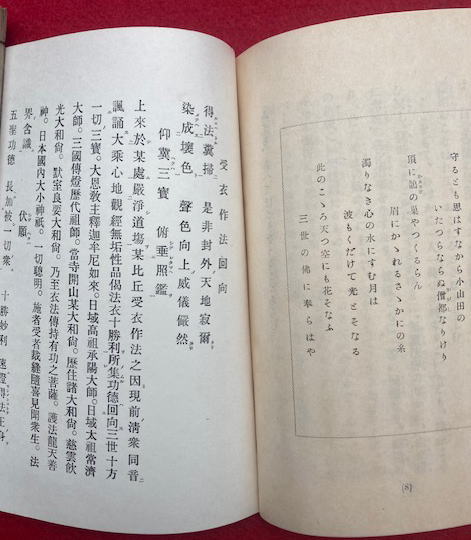 守るとも思はすなから小山田の
いたつらならぬ僧都なりけり
頂に鵲の巣やつくるらん
眉にかゝれるさゝかにの糸
濁りなき心の水にすむ月は
波もくだけて光とそなる
此のこゝろ天つ空にも花そなふ
三世の佛に奉らはや
(8)
受衣作法回向
得法糞掃 是非封外天地寂爾
染成壞色 聲色向上威儀儼然
仰冀三寶 俯垂照鑑
上來於某處嚴淨道場某比丘受衣作法之因現前淸衆同音
諷誦大乘心地觀經無垢性品偈法衣十勝利所集功德回向三世十方
一切三寶。大恩敎主釋迦牟尼如來。日域高祖承陽大師。日域太祖常濟
大師。三國傳燈歷代祖師。當寺開山某大和尙。歷住諸大和尙。慈雲飮
光大和尙。默室良要大和尙。乃至衣法傳持有功之菩薩。護法龍天善
神。日本國內大小神祇。一切聰明。施者受者裁縫隨喜見聞衆生。法
界含識。 伏願
五聖功德 長加被一切衆 十勝妙利 速證得法王身